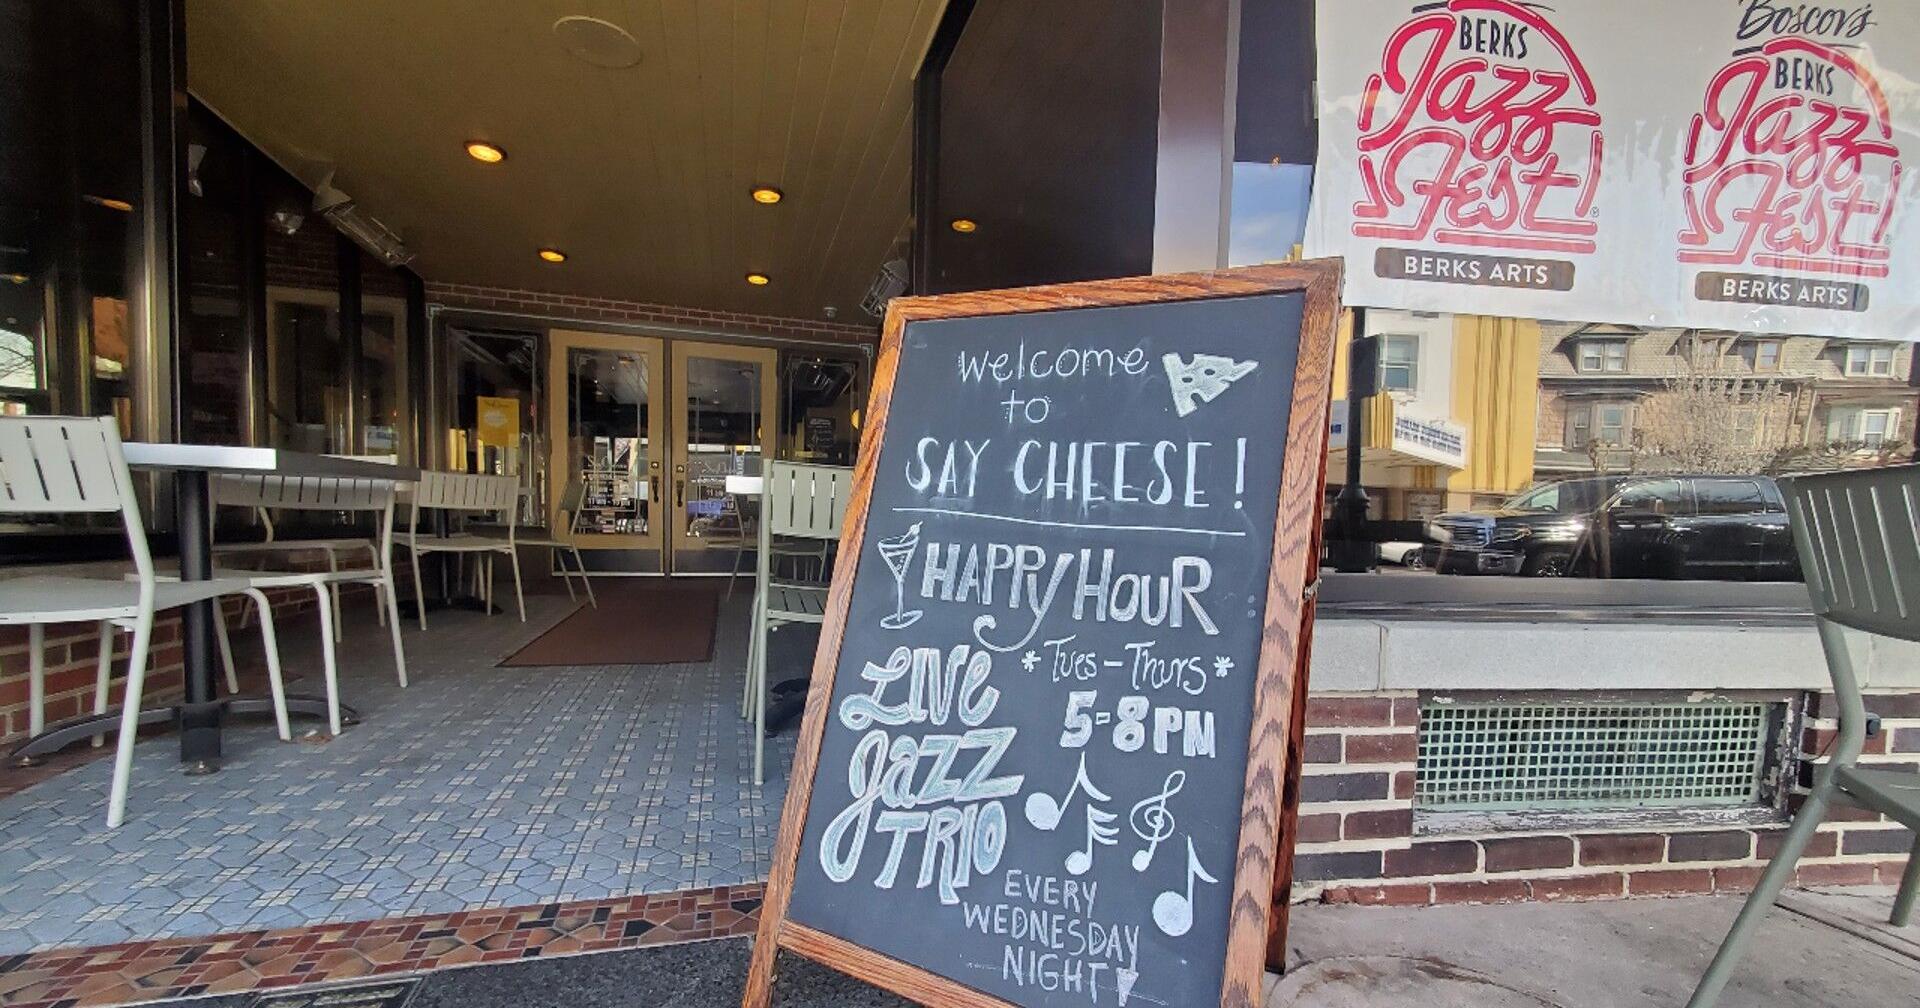 welcome
to
SAY CHEESE!
HAPPY HOUR
*Tues-Thurs*
5-8PM
LIVE
Jazz
TRIO
EVERY
WEDNESDAY
NIGHT!
BERKS
Jazz
Fest
BERKS ARTS
Boscov's
BERKS
Jazz
Fest
BERKS ARTS